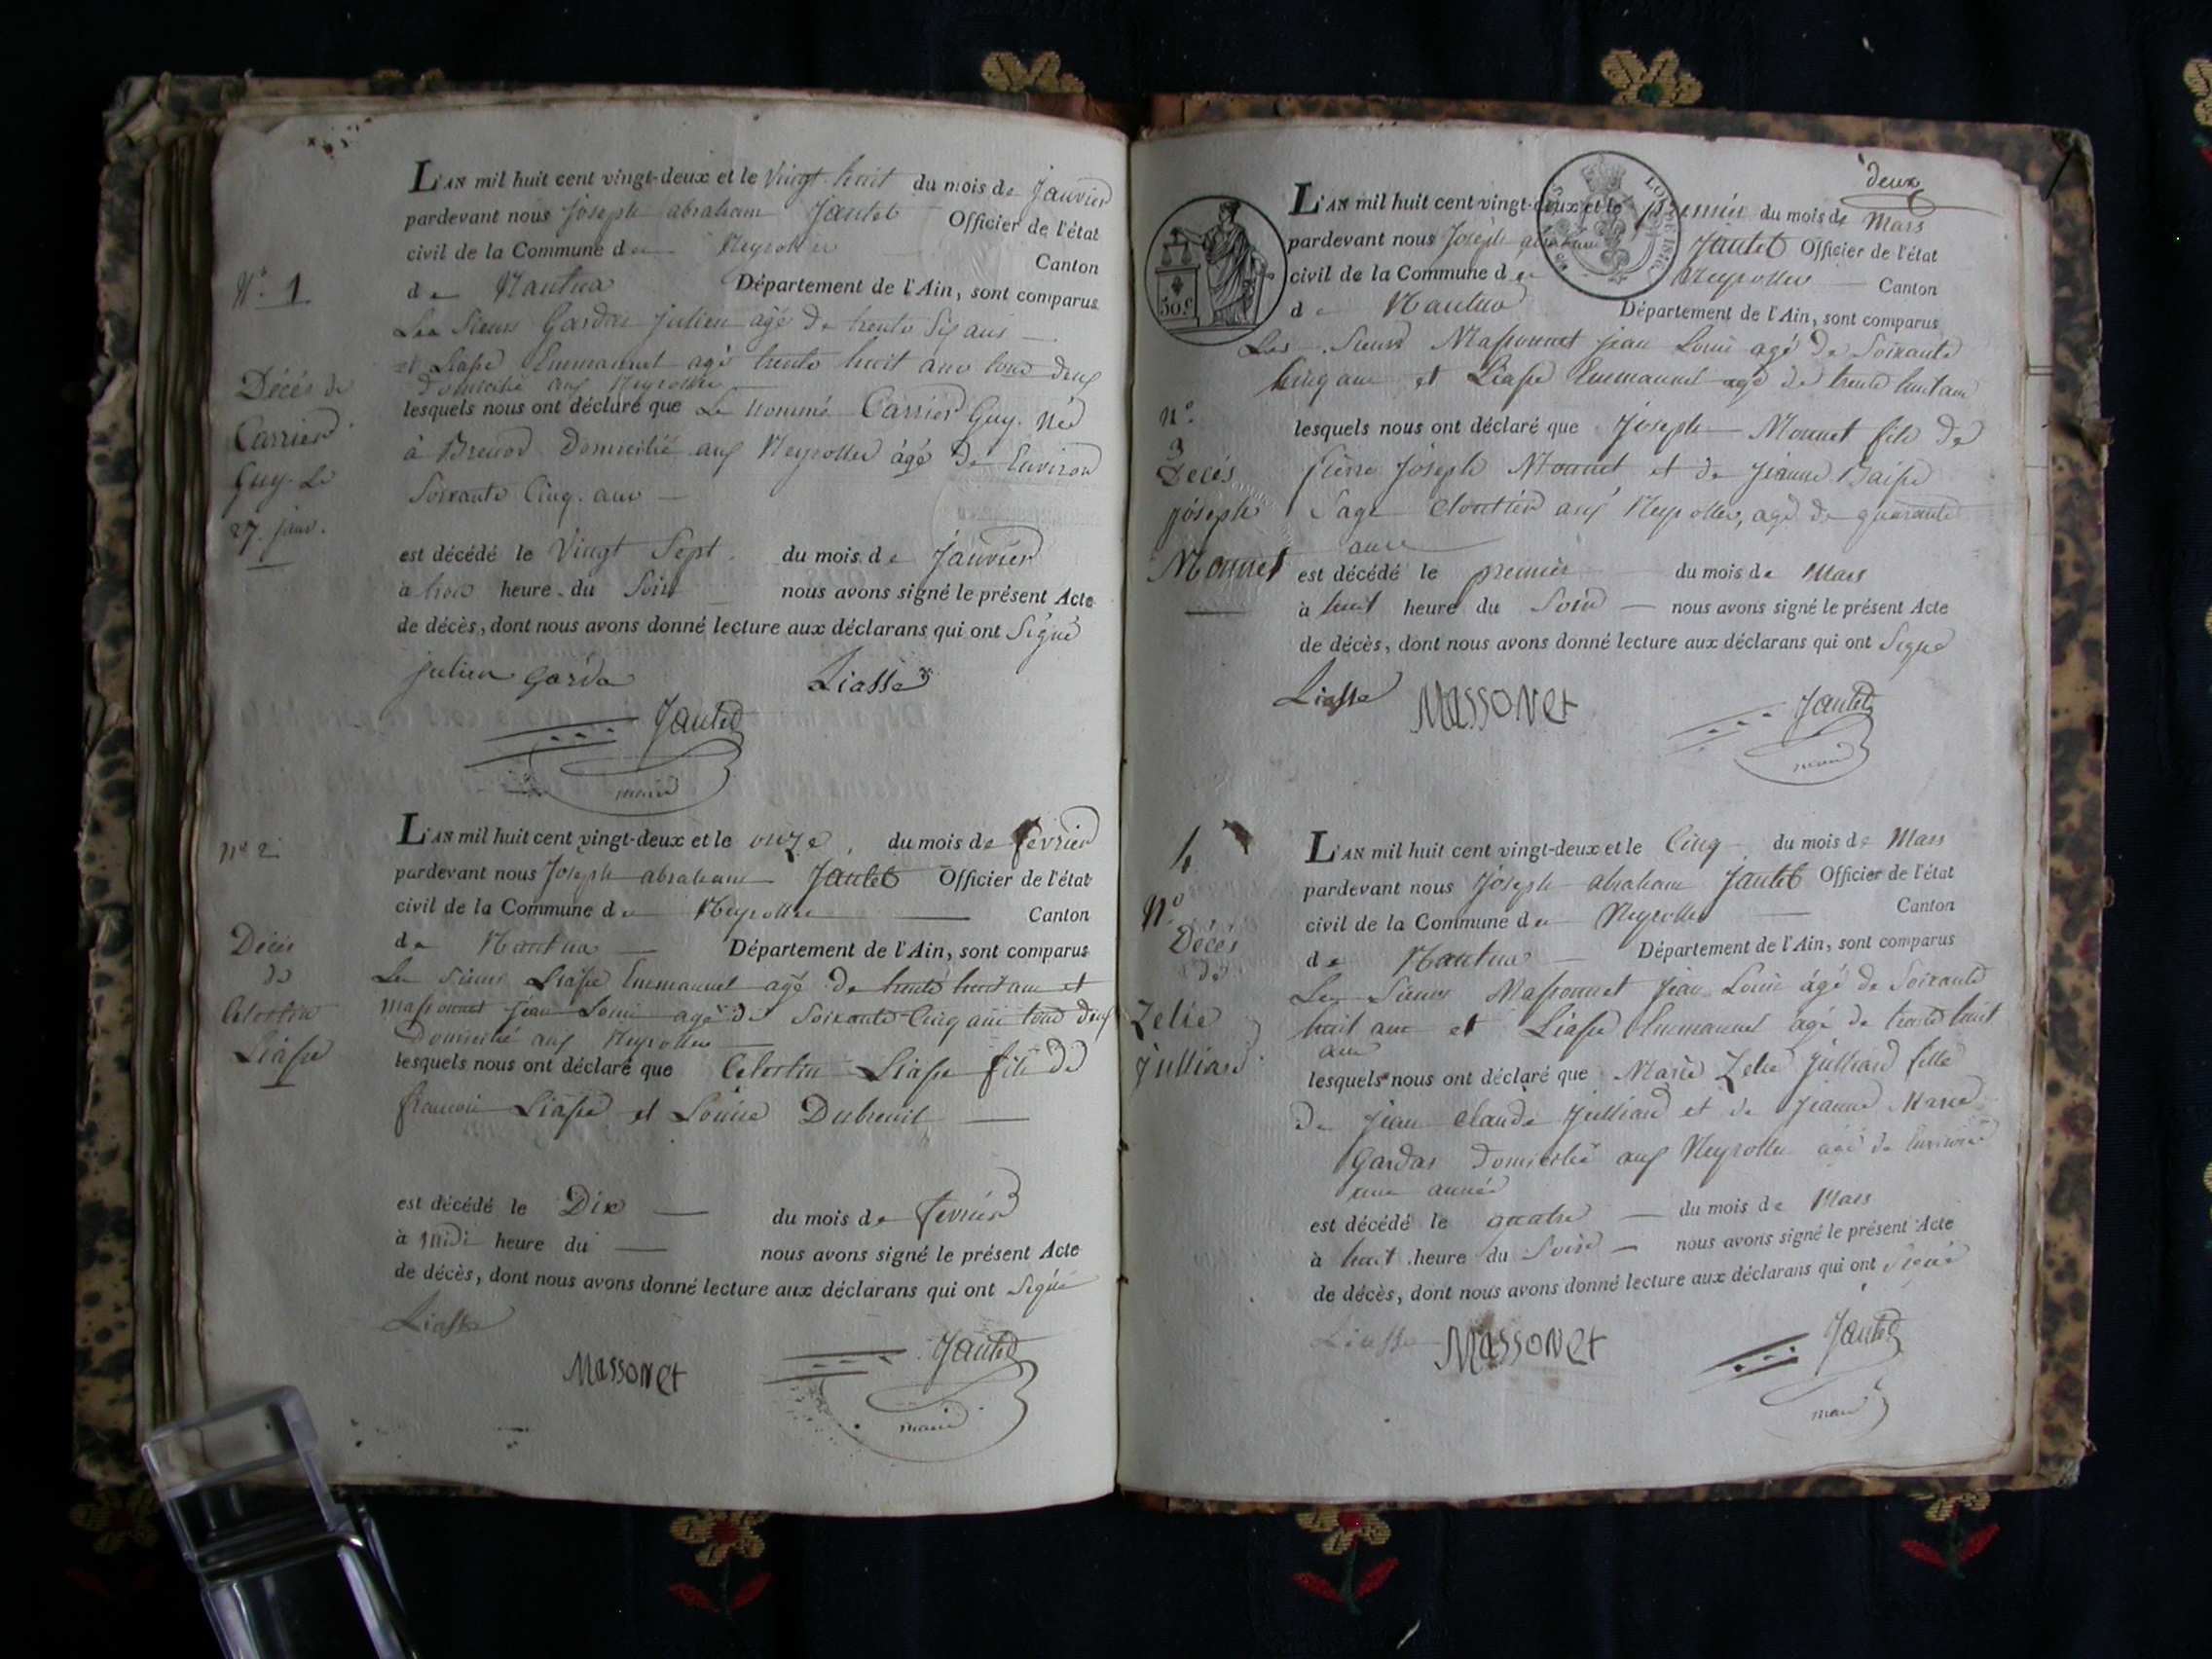 L'AN mil huit cent vingt-deux et le Vingt huit du mois de Janvier
pardevant nous Joseph abraham Jantet Officier de l'état
civil de la Commune des Neyrolles Canton
de Nantua Département de l'Ain, sont comparus
Les Sieurs Gardas Julien agé de trente Six ans
et Liasse Emmanuel agé trente huit ans tous deux
domicilié aux Neyrolles
lesquels nous ont déclaré que Le nommé Carrier Guy. Né
à Brenod Domicilié aux Neyrolles âgé de Environ
Soixante Cinq. ans
est décédé le Vingt Sept du mois de Janvier
à trois heure du Soir nous avons signé le présent Acte
de décès, dont nous avons donné lecture aux déclarans qui ont Signé
julien Garda Liasse
Jantet
maire
N.° 1
Décès de
Carrier
Guy. Le
27. janv.
L'AN mil huit cent vingt-deux et le onze du mois de fevrier
pardevant nous Joseph abraham Jantet Officier de l'état
civil de la Commune des Neyrolles Canton
de Nantua Département de l'Ain, sont comparus
Les Sieurs Liasse Emmanuel agé de trente huit ans et
Massonnet Jean Louis agé de Soixante Cinq ans tous deux
Domicilié aux Neyrolles
lesquels nous ont déclaré que Celestin Liasse fils de
francois Liasse et Louise Dubreuil
est décédé le Dix du mois de fevrier
à Midi heure du nous avons signé le présent Acte
de décès, dont nous avons donné lecture aux déclarans qui ont Signé
Liasse
Massonet Jantet
maire
N° 2
Décès
de
Celestin
Liasse
deux
50.C
L'AN mil huit cent vingt-deux et le premier du mois de Mars
pardevant nous Joseph abraham Jantet Officier de l'état
civil de la Commune des Neyrolles Canton
de Nantua Département de l'Ain, sont comparus
Les Sieurs Massonnet jean Louis agé de Soixante
Cinq ans et Liasse Emmanuel agé de trente huit ans
lesquels nous ont déclaré que Joseph Monnet fils de
Pierre Joseph Monnet et de Jeanne Baisse
Sage Cloutier aux Neyrolles, agé de quarante
ans
est décédé le premier du mois de Mars
à huit heure du Soir nous avons signé le présent Acte
de décès, dont nous avons donné lecture aux déclarans qui ont Signé
Liasse Massonet Jantet
maire
N.°
3
Décés
joseph
Monnet
L'AN mil huit cent vingt-deux et le Cinq du mois de Mars
pardevant nous Joseph abraham Jantet Officier de l'état
civil de la Commune des Neyrolles Canton
de Nantua Département de l'Ain, sont comparus
Les Sieurs Massonnet Jean Louis âgé de Soixante
huit ans et Liasse Emmanuel agé de trente huit
ans
lesquels nous ont déclaré que Marie Zelie Julliard fille
de Jean Claude Julliard et de Jeanne Marie
Gardas domicilié aux Neyrolles agé de Environ
une année
est décédé le quatre du mois de Mars
à huit heure du Soir nous avons signé le présent Acte
de décès, dont nous avons donné lecture aux déclarans qui ont Signé
Liasse Massonet Jantet
maire
4
N.°
Décés
de
Zelie
Julliard